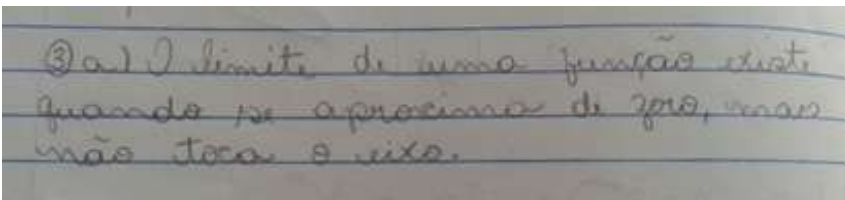 ③ a) O limite de uma função existe
quando se aproxima de zero, mas
não toca o eixo.